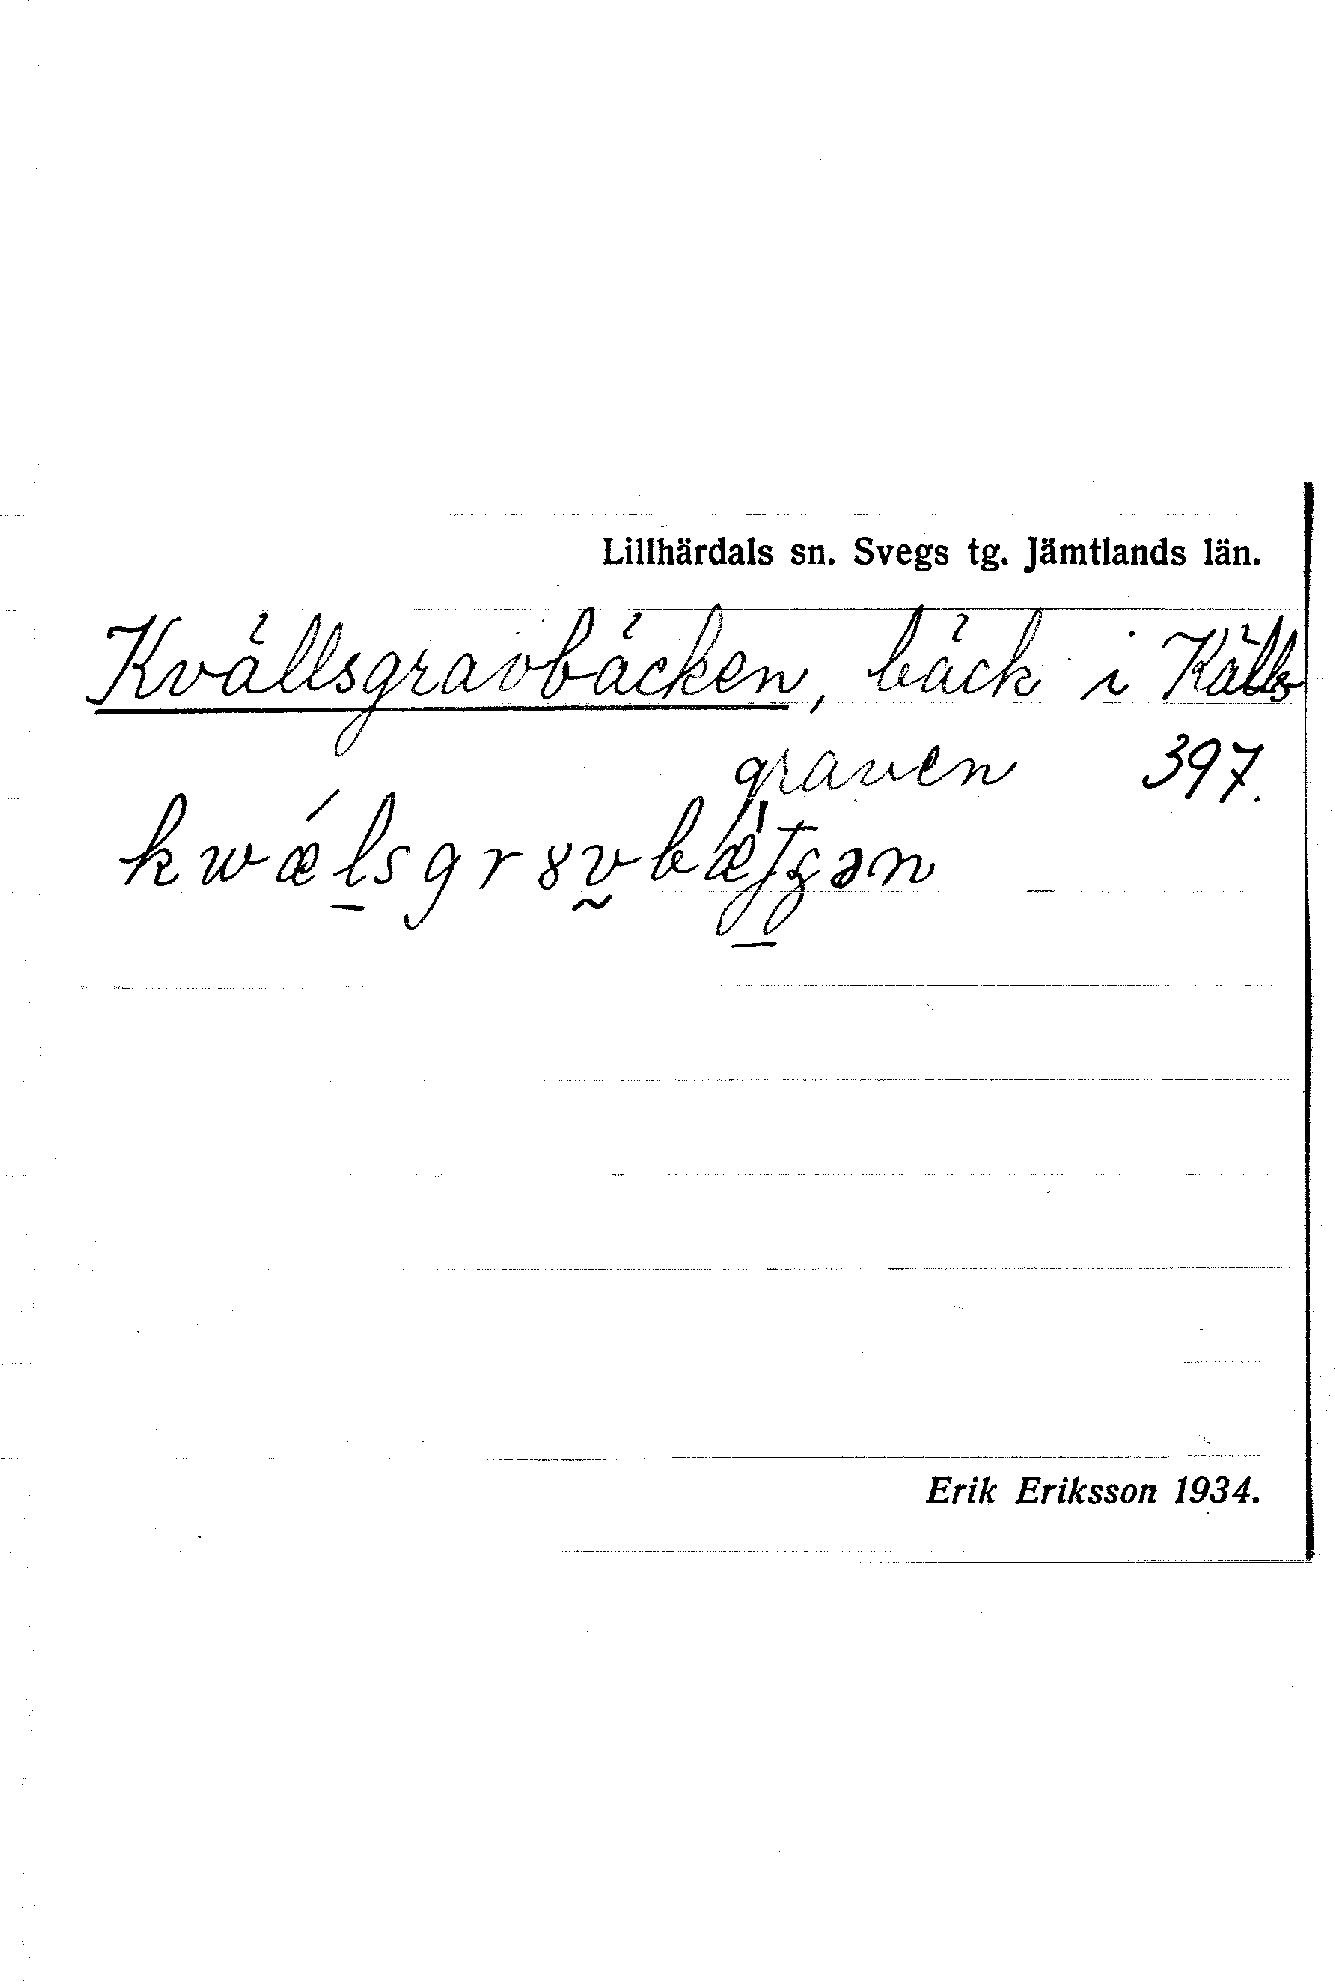 Lillhärdals sn. Svegs tg. Jämtlands län.
Kvällsgravbäcken, bäck i Källs
graven 397.
kwǽlsgrȣvbæ̀ʈʂən
Erik Eriksson 1934.